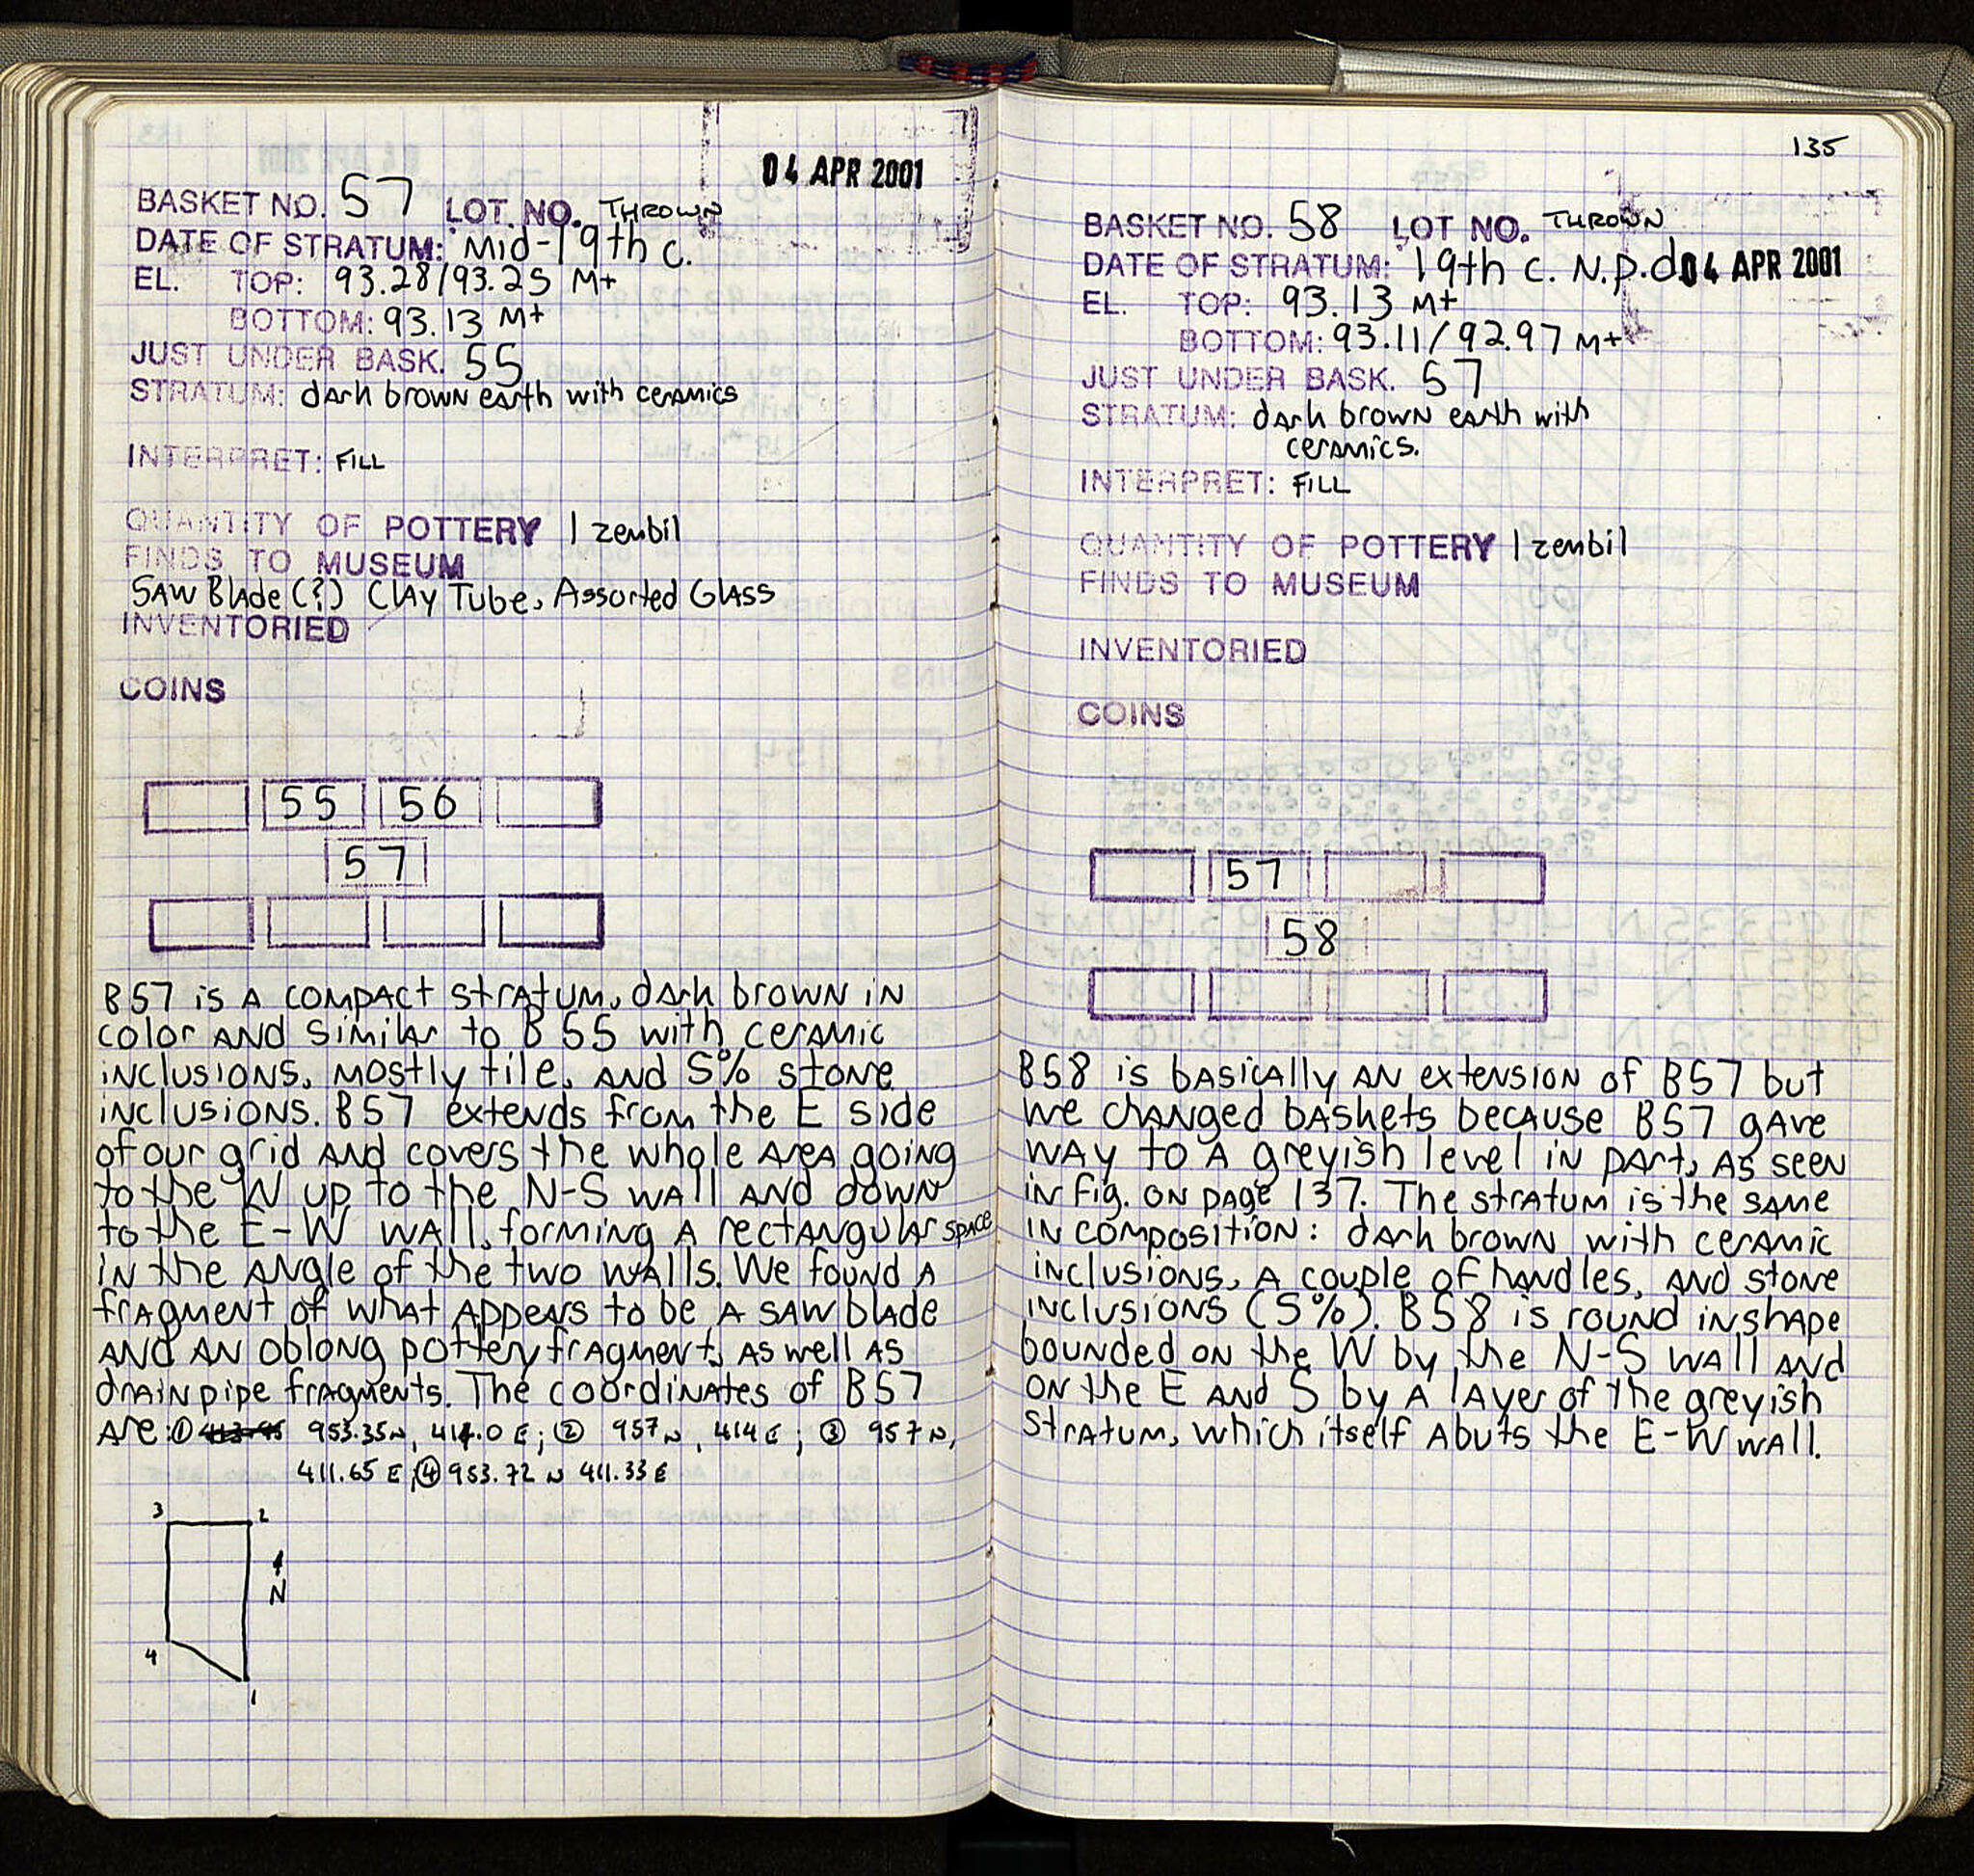 04 APR 2001
BASKET NO. 57 LOT NO. THROWN
DATE OF STRATUM: Mid-19th c.
EL. TOP: 93.28/93.25 M+
BOTTOM: 93.13 M+
JUST UNDER BASK. 55
STRATUM: dark brown earth with ceramics
INTERPRET: FILL
QUANTITY OF POTTERY 1 zembil
FINDS TO MUSEUM
SAW Blade (?) Clay Tube, Assorted Glass
INVENTORIED
COINS
55 56
57
B57 is a compact stratum, dark brown in
color and similar to B 55 with ceramic
inclusions, mostly tile, and 5% stone
inclusions. B57 extends from the E side
of our grid and covers the whole area going
to the W up to the N-S wall and down
to the E-W wall, forming a rectangular space
in the angle of the two walls. We found a
fragment of what appears to be a saw blade
and an oblong pottery fragment, as well as
drainpipe fragments. The coordinates of B57
are: ① 953.35N, 414.0 E; ② 957 N, 414 E; ③ 957 N,
411.65 E; ④ 953.72 N 411.33 E
3 2
N
4
1
135
BASKET NO. 58 LOT NO. THROWN
DATE OF STRATUM: 19th c. N.p.d. 04 APR 2001
EL. TOP: 93.13 M+
BOTTOM: 93.11/92.97 M+
JUST UNDER BASK. 57
STRATUM: dark brown earth with
ceramics.
INTERPRET: FILL
QUANTITY OF POTTERY 1 zembil
FINDS TO MUSEUM
INVENTORIED
COINS
57
58
B58 is basically an extension of B57 but
we changed baskets because B57 gave
way to a greyish level in part, as seen
in fig. on page 137. The stratum is the same
in composition: dark brown with ceramic
inclusions, a couple of handles, and stone
inclusions (5%). B58 is round in shape
bounded on the W by the N-S wall and
on the E and S by a layer of the greyish
stratum, which itself abuts the E-W wall.